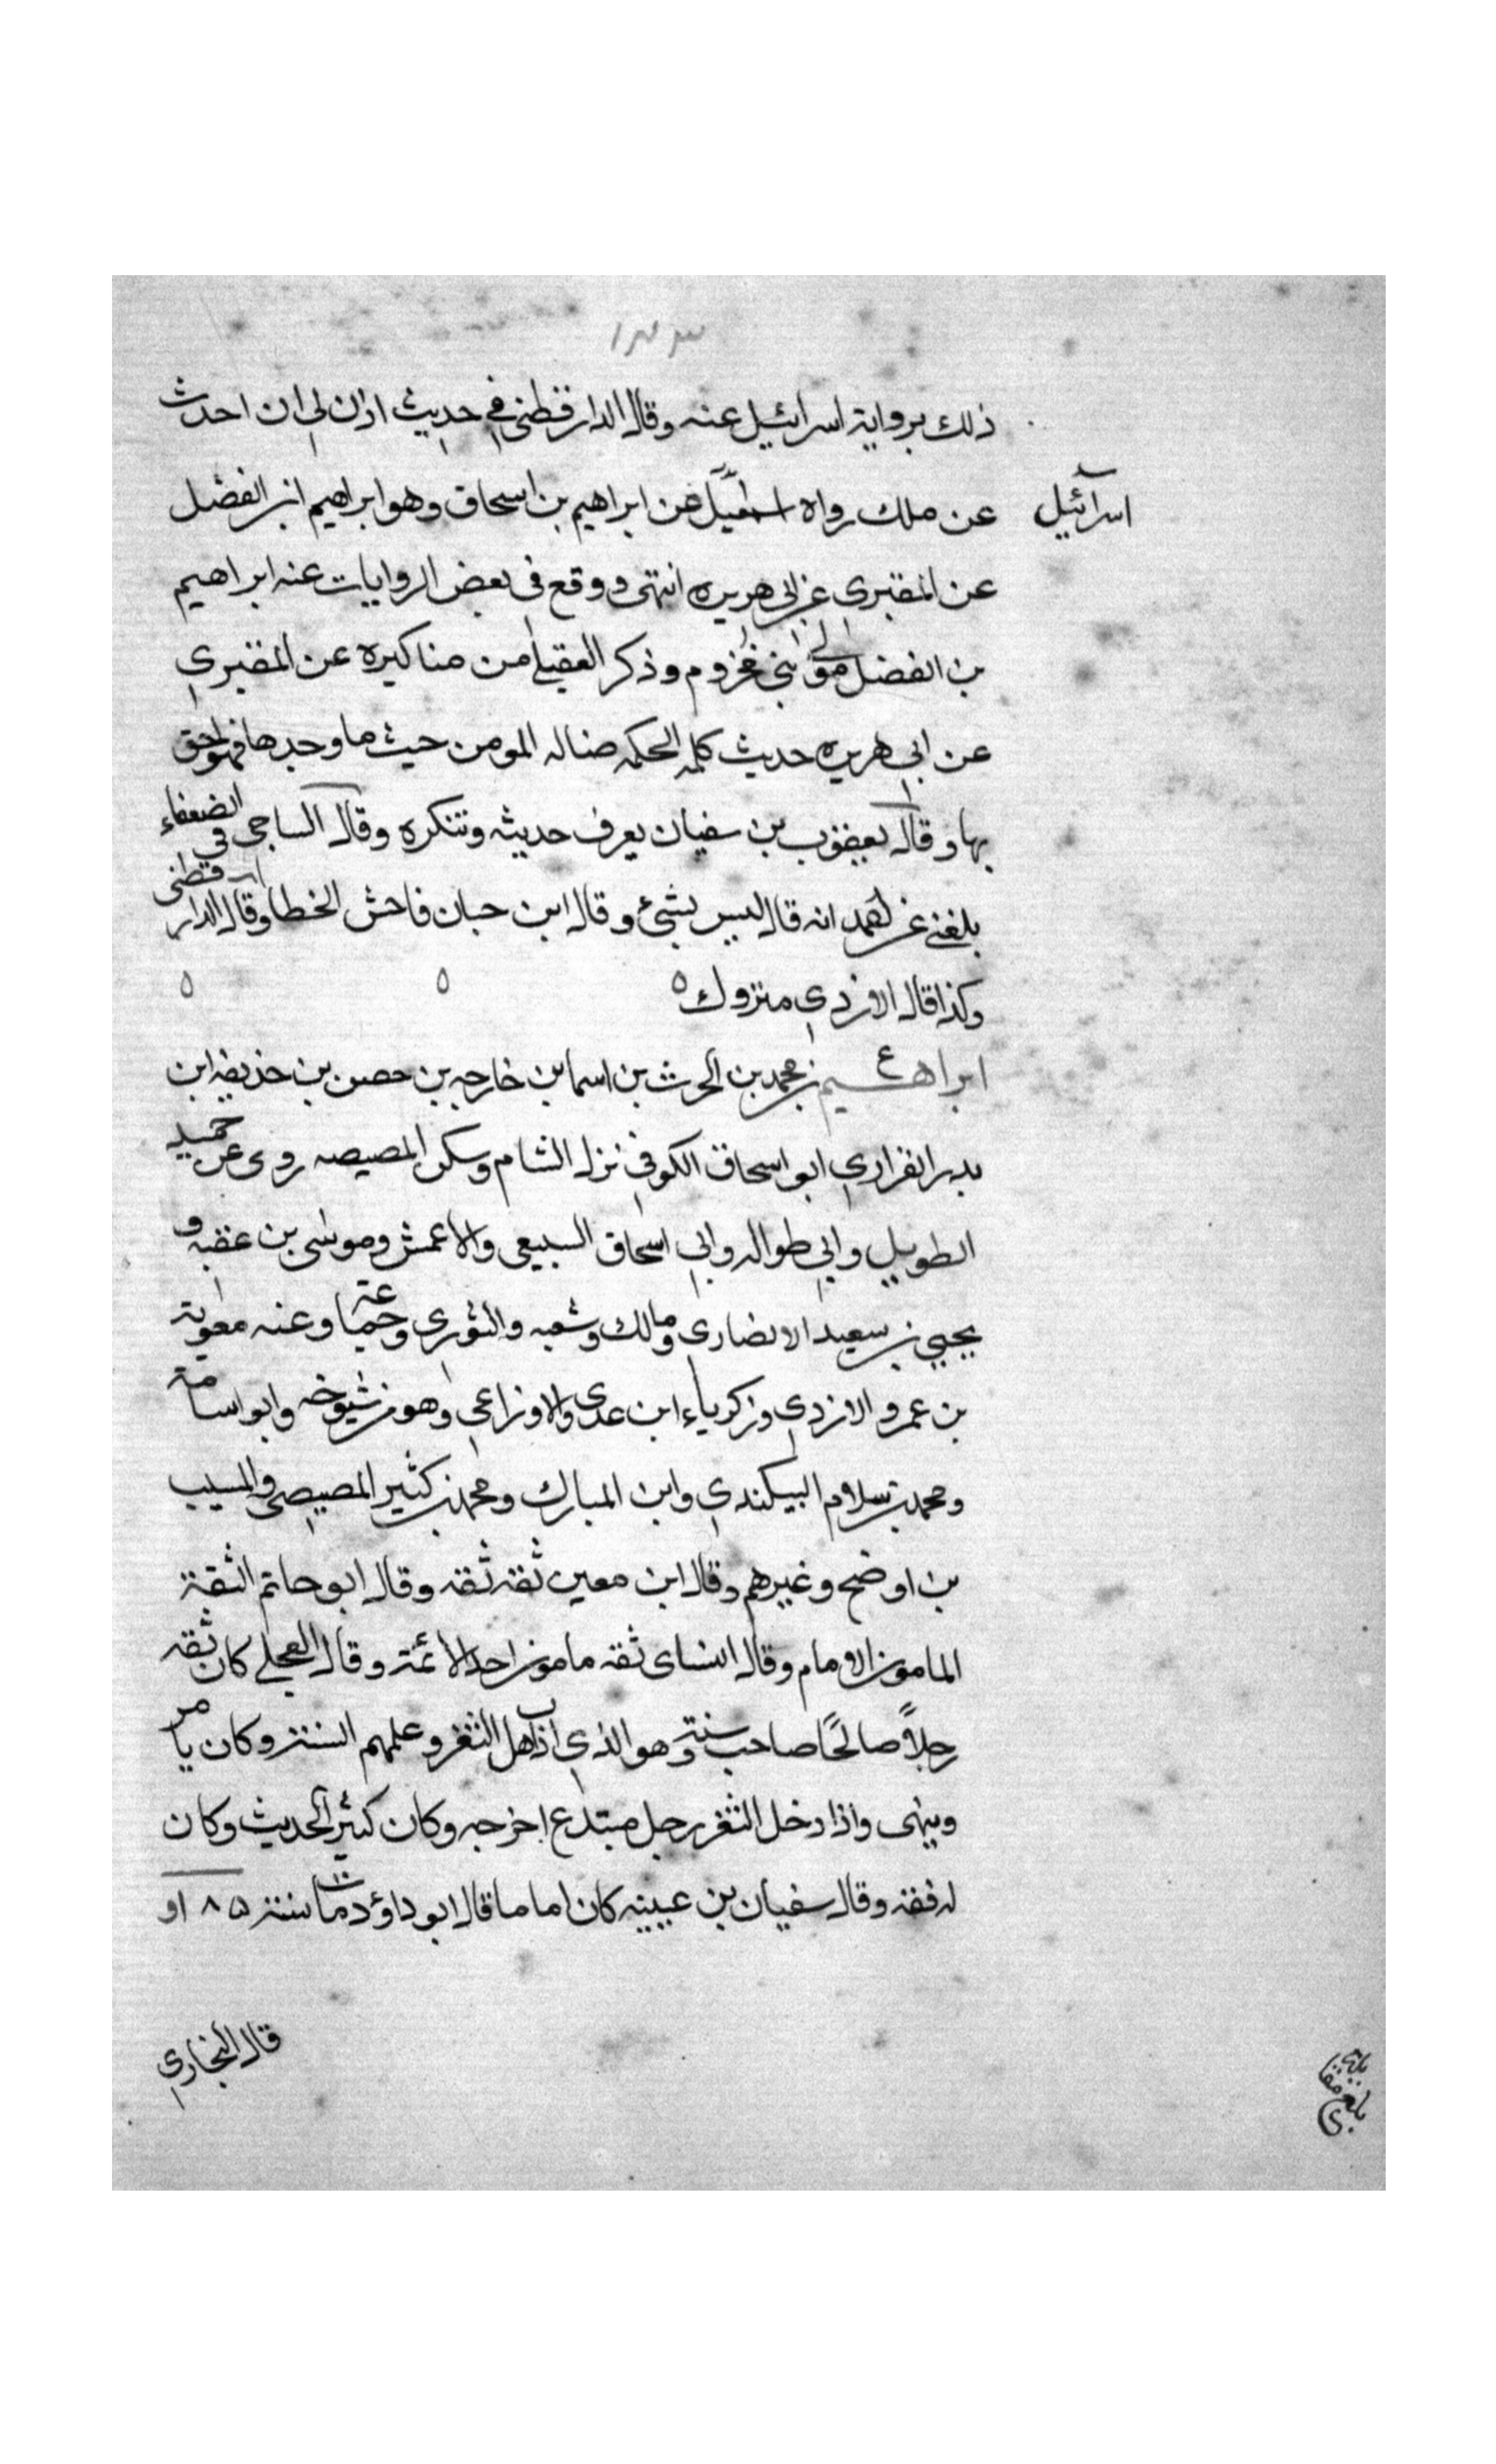 ١٣٣
ذلك برواية اسرائيل عنه وقال الدارقطني في حديث اذن لي ان احدث
عن ملك رواه اسمعيل عن ابراهيم بن اسحاق وهو ابراهيم ابن الفضل
اسرآئيل
عن المقبري عن ابي هريره انتهى ووقع في بعض الروايات عنه ابراهيم
بن الفضل مولى بني مخزوم وذكر العقيلي من مناكيره عن المقبري
عن ابي هريره حديث كلمه الحكمه ضاله المومن حيث ما وجدها فهو احق
بها وقال يعقوب بن سفيان يعرف حديثه وتنكره وقال الساجي في الضعفاء
بلغني عن احمد انه قال ليس بشئ وقال ابن حبان فاحش الخطا وقال الدارقطني
وكذا قال الازدي متروك ه ه ه
ابراهيم بن محمد بن الحرث بن اسما بن خارجه بن حصن بن حذيفه ابن
ع
بدر الفزاري ابو اسحاق الكوفي نزل الشام وسكن المصيصه روى عن حميد
الطويل وابي طواله وابي اسحاق السبيعي والاعمش وموسى بن عقبه و
يحيى بن سعيد الانصاري ومالك وشعبه والثوري وجماعة وعنه معوية
بن عمرو الازدي وزكرياء ابن عدي والاوزاعي وهو من شيوخه وابو اسامة
ومحمد بن سلام البيكندي وابن المبارك ومحمد بن كثير المصيصي والمسيب
بن اوضح وغيرهم وقال ابن معين ثقه ثقه وقال ابو حاتم الثقة
المامون الامام وقال النساى ثقه مامون احد الائمة وقال العجلي كان ثقه
رجلاً صالحًا صاحب سنة وهو الذي ادب اهل الثغر وعلمهم السنة وكان يامر
وينهى واذا دخل الثغر رجل مبتدع اخرجه وكان كثير الحديث وكان
له فقه وقال سفيان بن عيينه كان اماما قال ابو داؤد مات سنة ٨٥ او
قال البخاري